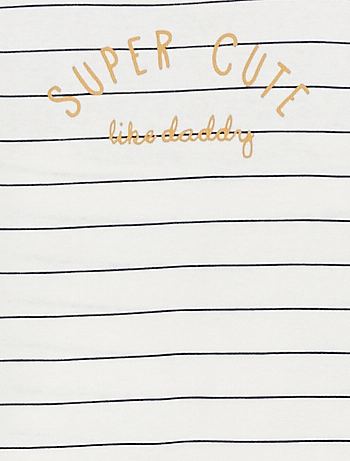 SUPER CUTE
like daddy